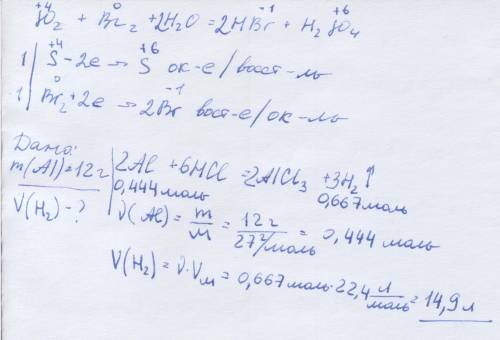 +4 0 -1 +6
SO₂ + Br₂ + 2H₂O = 2HBr + H₂SO₄
+4 +6
1 | S - 2e → S ок-е / восст-ль
0 -1
1 | Br₂ + 2e → 2Br восст-е / ок-ль
Дано:
m(Al) = 12 г
V(H₂) - ?
2Al + 6HCl = 2AlCl₃ + 3H₂ ↑
0,444 моль 0,667 моль
ν(Al) = m/M = 12 г / 27 г/моль = 0,444 моль
V(H₂) = ν · Vм = 0,667 моль · 22,4 л/моль = 14,9 л